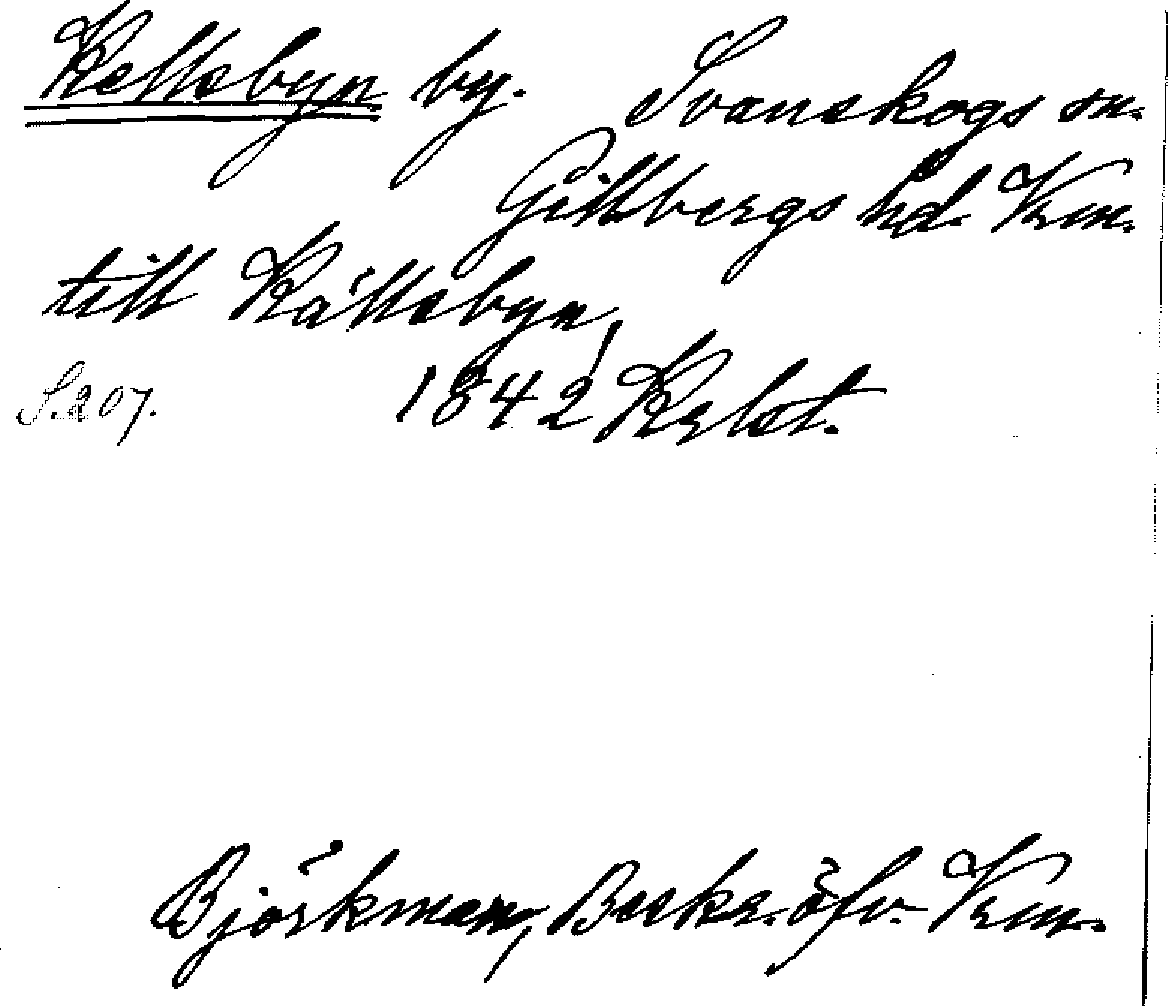 Kellsbyn by. Svanskogs sn.
Gillbergs hd. Vrm.
till Källsbyn,
S. 207. 1842 Krlst.
Björkman, Beskr. öfv. Vrm.